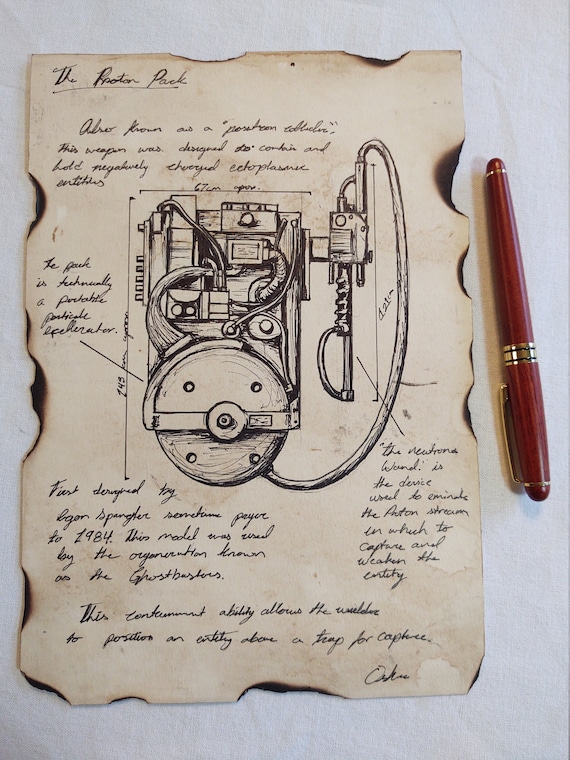 The Proton Pack
Also known as a "positron collider".
This weapon was designed to contain and
hold negatively charged ectoplasmic
entities
67cm aprox.
The pack
is technically
a portable
particle
accellerator.
"the neutrona
Wand." is
the device
used to eminate
the Proton stream
in which to
capture and
weaken the
entity
First designed by
Egon Spengler sometime
to 1984. This model was used
by the organeration known
as the Ghostbusters.
This containment ability allows the
to position an entity above a trap for capture.